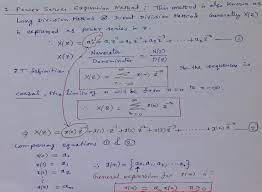 1. Power Series Expansion Method : This method is also known as
Long Division Method or Direct Division Method. Generally X(Z)
is expressed as power series in z.
X(Z) = a₀z⁰ + a₁z⁻¹ + a₂z⁻² + a₃z⁻³ + ------
X(Z) = Numerator / Denominator = N(Z) / D(Z)
ZT definition X(Z) = Σ x(n) z⁻ⁿ the sequence is
causal, the limits of n will be from n=0 to n=∞
∴ X(Z) = Σ x(n) z⁻ⁿ
X(Z) = x(0) z⁰ + x(1) z⁻¹ + x(2) z⁻² + ------
Comparing equations ① & ②
x(0) = a₀
x(1) = a₁
x(2) = a₂
∴ x(n) = {a₀, a₁, a₂, ...}
General expression for x(n)
x(n) = aₙ